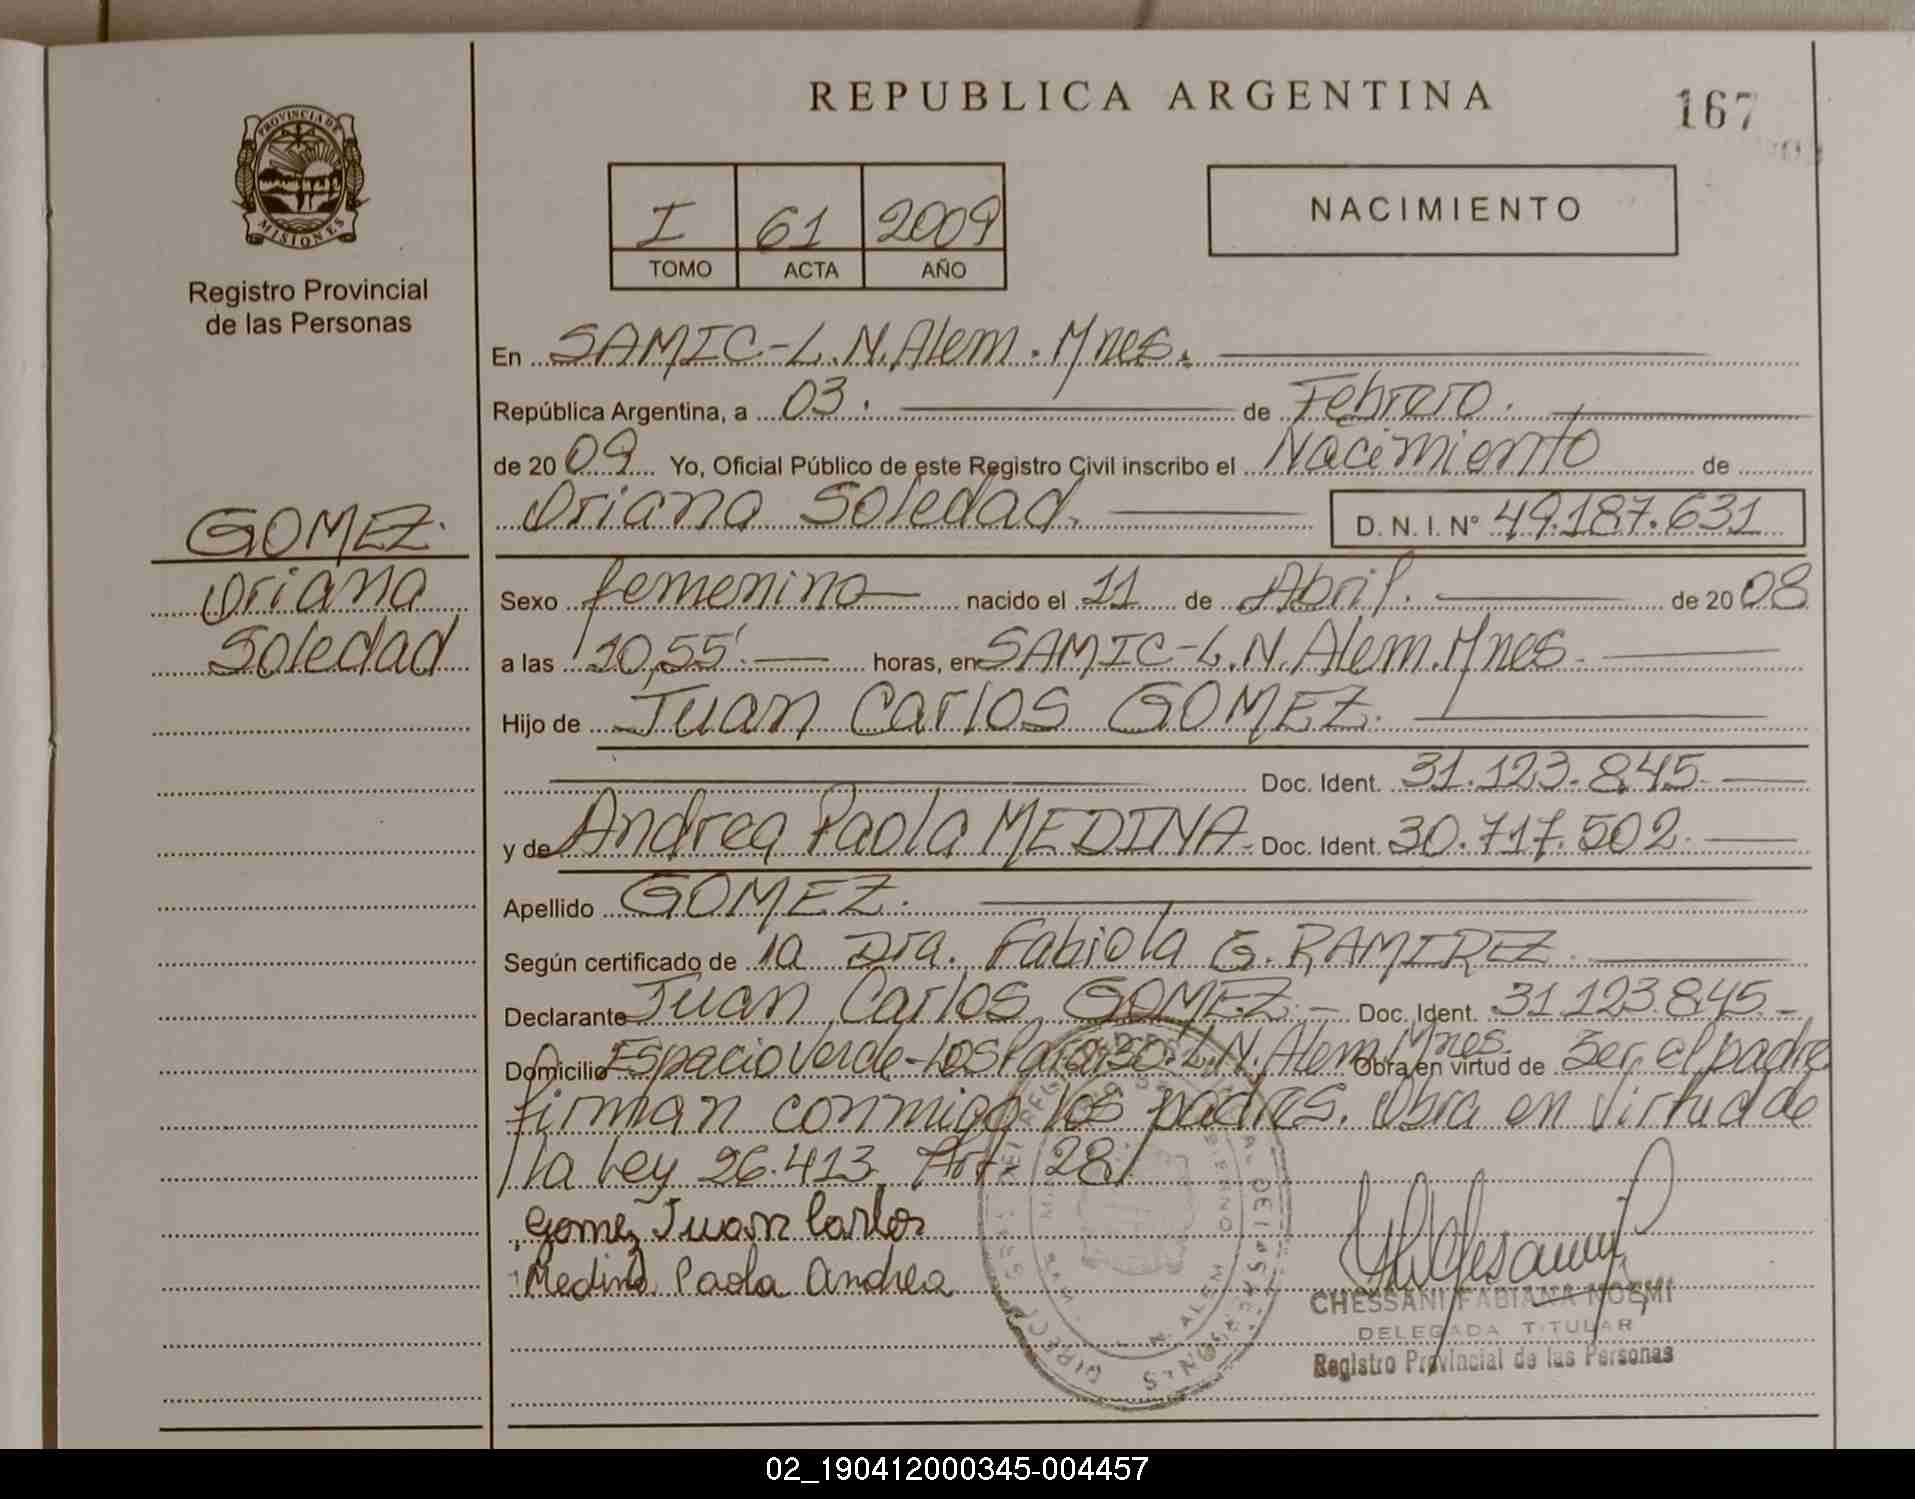 REPUBLICA ARGENTINA
167
PROVINCIA DE
MISIONES
Registro Provincial
de las Personas
I 61 2009
TOMO ACTA AÑO
NACIMIENTO
En SAMIC-L.N.Alem. Mnes.
República Argentina, a 03. de Febrero.
de 2009 Yo, Oficial Público de este Registro Civil inscribo el Nacimiento de
Oriana Soledad. D. N. I. Nº 49.187.631
GOMEZ.
Oriana
Soledad
Sexo femenino nacido el 11 de Abril. de 2008
a las 10,55' horas, en SAMIC-L.N.Alem.Mnes.
Hijo de Juan Carlos GOMEZ.
Doc. Ident. 31.123.845
y de Andrea Paola MEDINA Doc. Ident. 30.717.502
Apellido GOMEZ.
Según certificado de la Dra. Fabiola G. RAMIREZ
Declarante Juan Carlos GOMEZ. Doc. Ident. 31.123.845
Domicilio Espacio Verde-Los Paraiso.L.N.Alem Mnes. Obra en virtud de Ser el padre
firman conmigo los padres. Obra en virtud de
la Ley 26.413. Art. 28/
Gomez Juan Carlos
Medina Paola Andrea
L. N. ALEM
MISIONES
CHESSANI FABIANA NOEMI
DELEGADA TITULAR
Registro Provincial de las Personas
02_190412000345-004457